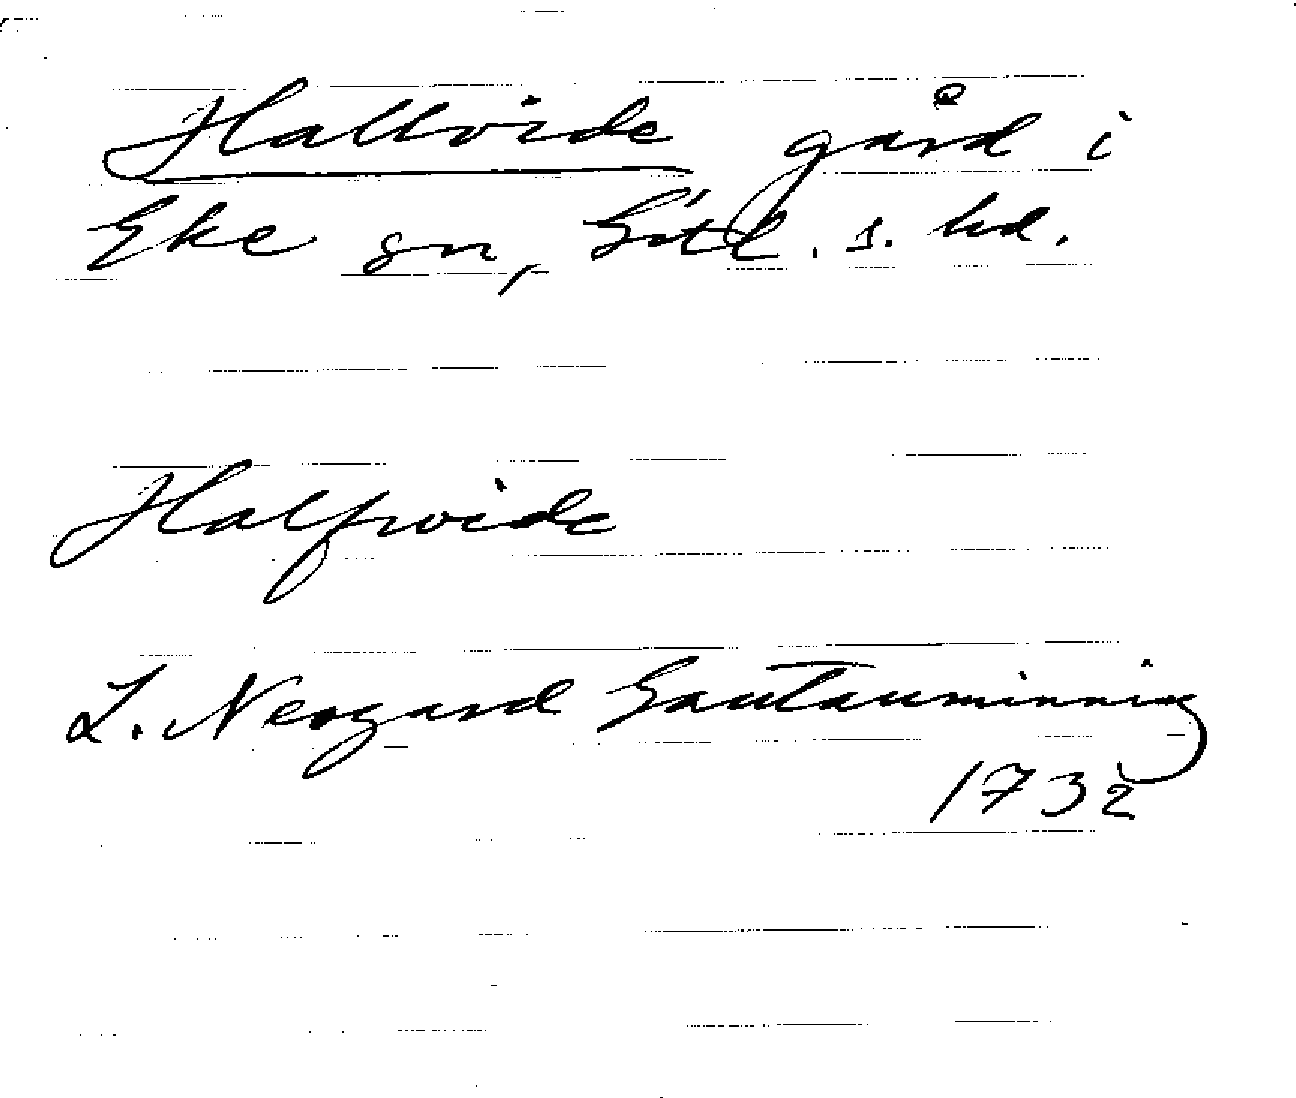 Hallvide gård i
Eke sn, Gotl. s. hd.
Halfvide
L. Neogard Gautauminning
1732